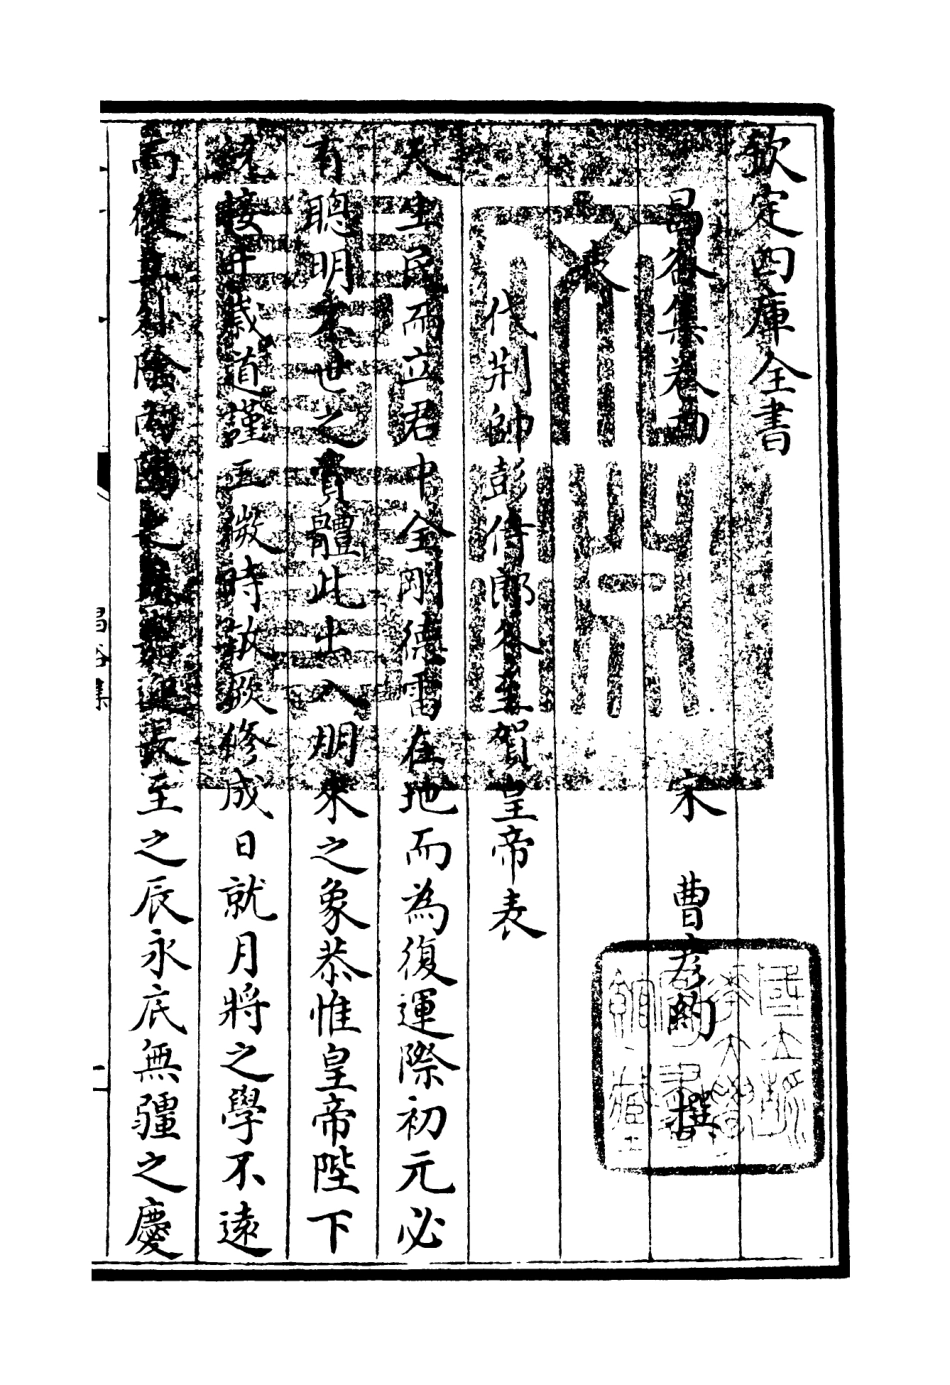 欽定四庫全書
昌谷集卷四
宋　曹彥約　撰
表
代荆帥彭侍郎冬至賀皇帝表
天生民而立君中全剛德雷在地而為復運際初元必
有聰明蓋世之資體此出入朋來之象恭惟皇帝陛下
統接千歲道謹三微時敏厥修成日就月將之學不遠
而復　　陰　陽之　　迎長至之辰永底無疆之慶
昌谷集